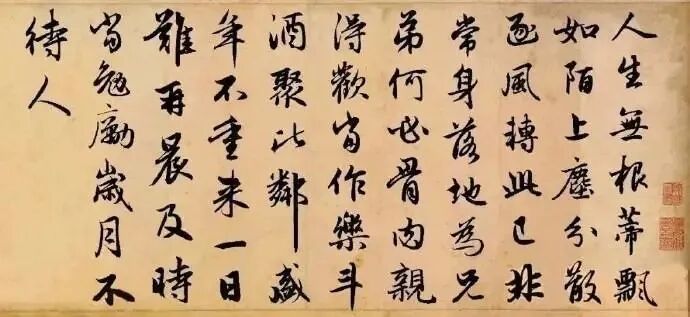 人生無根蒂飄
如陌上塵分散
逐風轉此已非
常身落地為兄
弟何必骨肉親
得歡當作樂斗
酒聚比鄰盛
年不重来一日
難再晨及時
當勉勵歲月不
待人